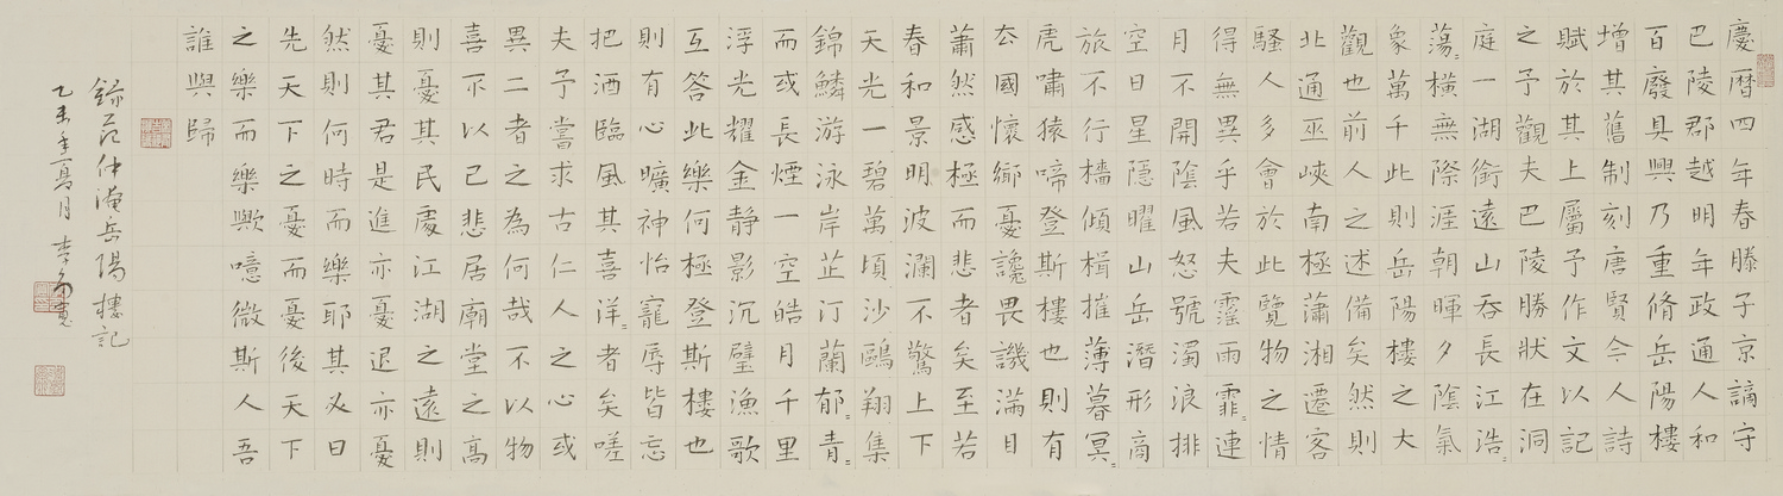 慶暦四年春滕子京謫守
巴陵郡越明年政通人和
百廢具興乃重脩岳陽樓
增其舊制刻唐賢今人詩
賦於其上屬予作文以記
之予觀夫巴陵勝狀在洞
庭一湖銜遠山吞長江浩〻
蕩〻橫無際涯朝暉夕陰氣
象萬千此則岳陽樓之大
觀也前人之述備矣然則
北通巫峽南極瀟湘遷客
騷人多會於此覽物之情
得無異乎若夫霪雨霏〻連
月不開陰風怒號濁浪排
空日星隱曜山岳潛形商
旅不行檣傾楫摧薄暮冥〻
虎嘯猿啼登斯樓也則有
去國懷鄉憂讒畏譏滿目
蕭然感極而悲者矣至若
春和景明波瀾不驚上下
天光一碧萬頃沙鷗翔集
錦鱗游泳岸芷汀蘭郁〻青〻
而或長煙一空皓月千里
浮光耀金静影沉璧漁歌
互答此樂何極登斯樓也
則有心曠神怡寵辱皆忘
把酒臨風其喜洋〻者矣嗟
夫予嘗求古仁人之心或
異二者之為何哉不以物
喜不以己悲居廟堂之高
則憂其民處江湖之遠則
憂其君是進亦憂退亦憂
然則何時而樂耶其必曰
先天下之憂而憂後天下
之樂而樂歟噫微斯人吾
誰與歸
錄范仲淹岳陽樓記
乙未年夏月 李